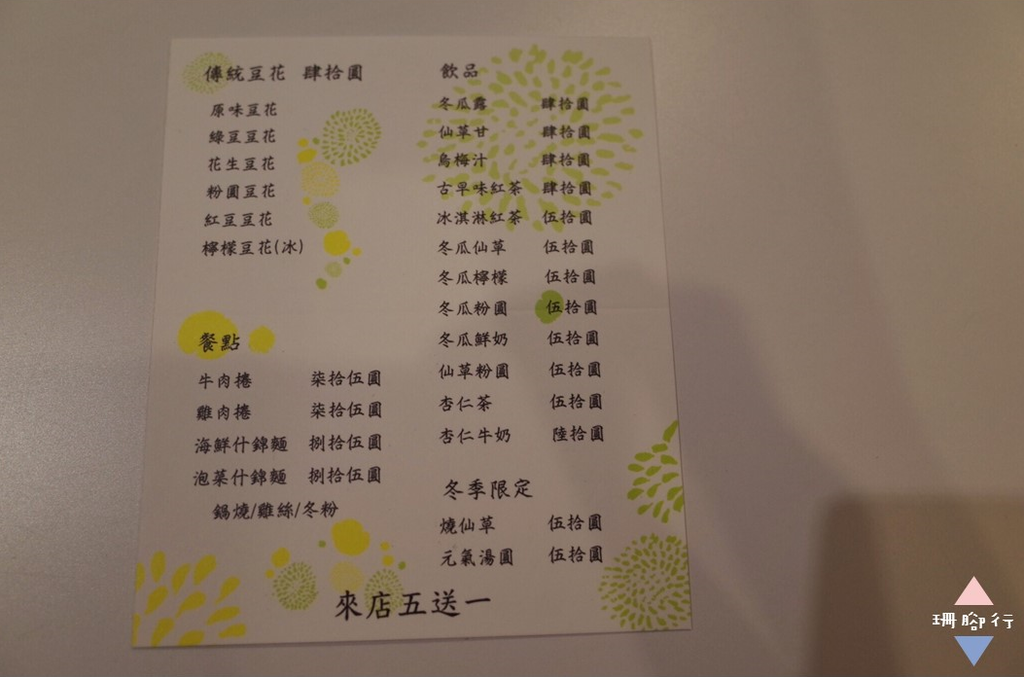 傳統豆花 肆拾圓
原味豆花
綠豆豆花
花生豆花
粉圓豆花
紅豆豆花
檸檬豆花(冰)
餐點
牛肉捲 柒拾伍圓
雞肉捲 柒拾伍圓
海鮮什錦麵 捌拾伍圓
泡菜什錦麵 捌拾伍圓
鍋燒/雞絲/冬粉
飲品
冬瓜露 肆拾圓
仙草甘 肆拾圓
烏梅汁 肆拾圓
古早味紅茶 肆拾圓
冰淇淋紅茶 伍拾圓
冬瓜仙草 伍拾圓
冬瓜檸檬 伍拾圓
冬瓜粉圓 伍拾圓
冬瓜鮮奶 伍拾圓
仙草粉圓 伍拾圓
杏仁茶 伍拾圓
杏仁牛奶 陸拾圓
冬季限定
燒仙草 伍拾圓
元氣湯圓 伍拾圓
來店五送一
珊腳行